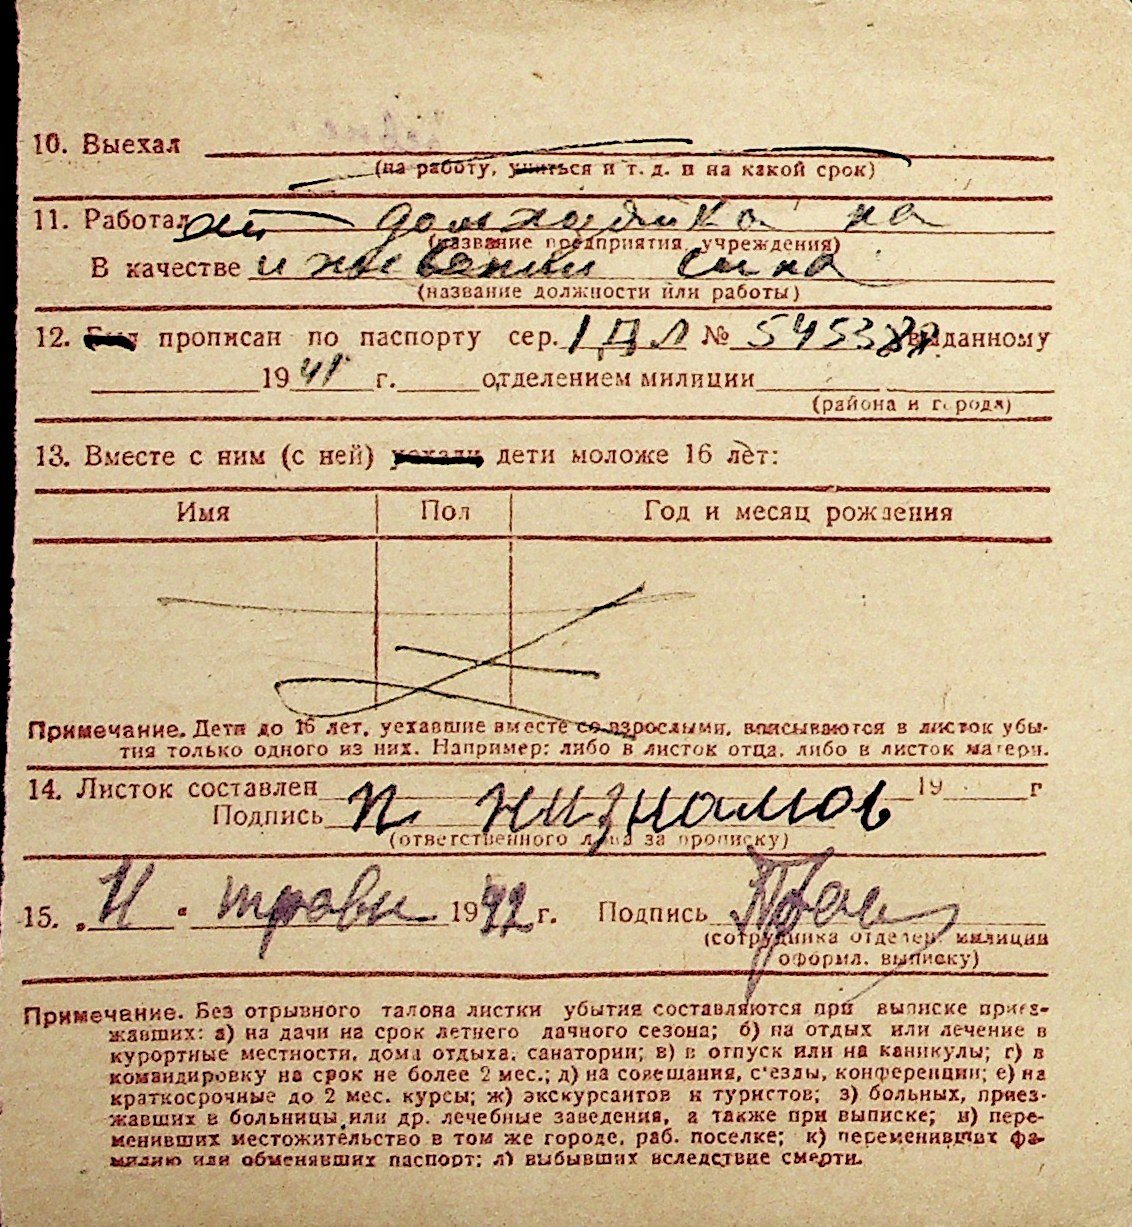 10. Выехал
(на работу, учиться и т. д. и на какой срок)
11. Работал домхозяйка на
(название предприятия учреждения)
В качестве иждивении сына
(название должности или работы)
12. Был прописан по паспорту сер. IДЛ № выданному
1941 г. отделением милиции
(района и города)
13. Вместе с ним (с ней) уехали дети моложе 16 лет:
Имя Пол Год и месяц рождения
Примечание. Дети до 16 лет, уехавшие вместе со взрослыми, вписываются в листок убы-
тия только одного из них. Например: либо в листок отца, либо в листок матери.
14. Листок составлен 19 г
Подпись п Низнамов
(ответственного лица за прописку)
15. „11" травн 1942 г. Подпись
(сотрудника отделен. милиции
оформл. выписку)
Примечание. Без отрывного талона листки убытия составляются при выписке приез-
жавших: а) на дачи на срок летнего дачного сезона; б) на отдых или лечение в
курортные местности, дома отдыха, санатории; в) в отпуск или на каникулы; г) в
командировку на срок не более 2 мес.; д) на совещания, с'езды, конференции; е) на
краткосрочные до 2 мес. курсы; ж) экскурсантов и туристов; з) больных, приез-
жавших в больницы или др. лечебные заведения, а также при выписке; и) пере-
менивших местожительство в том же городе, раб. поселке; к) переменивших фа-
милию или обменявших паспорт; л) выбывших вследствие смерти.